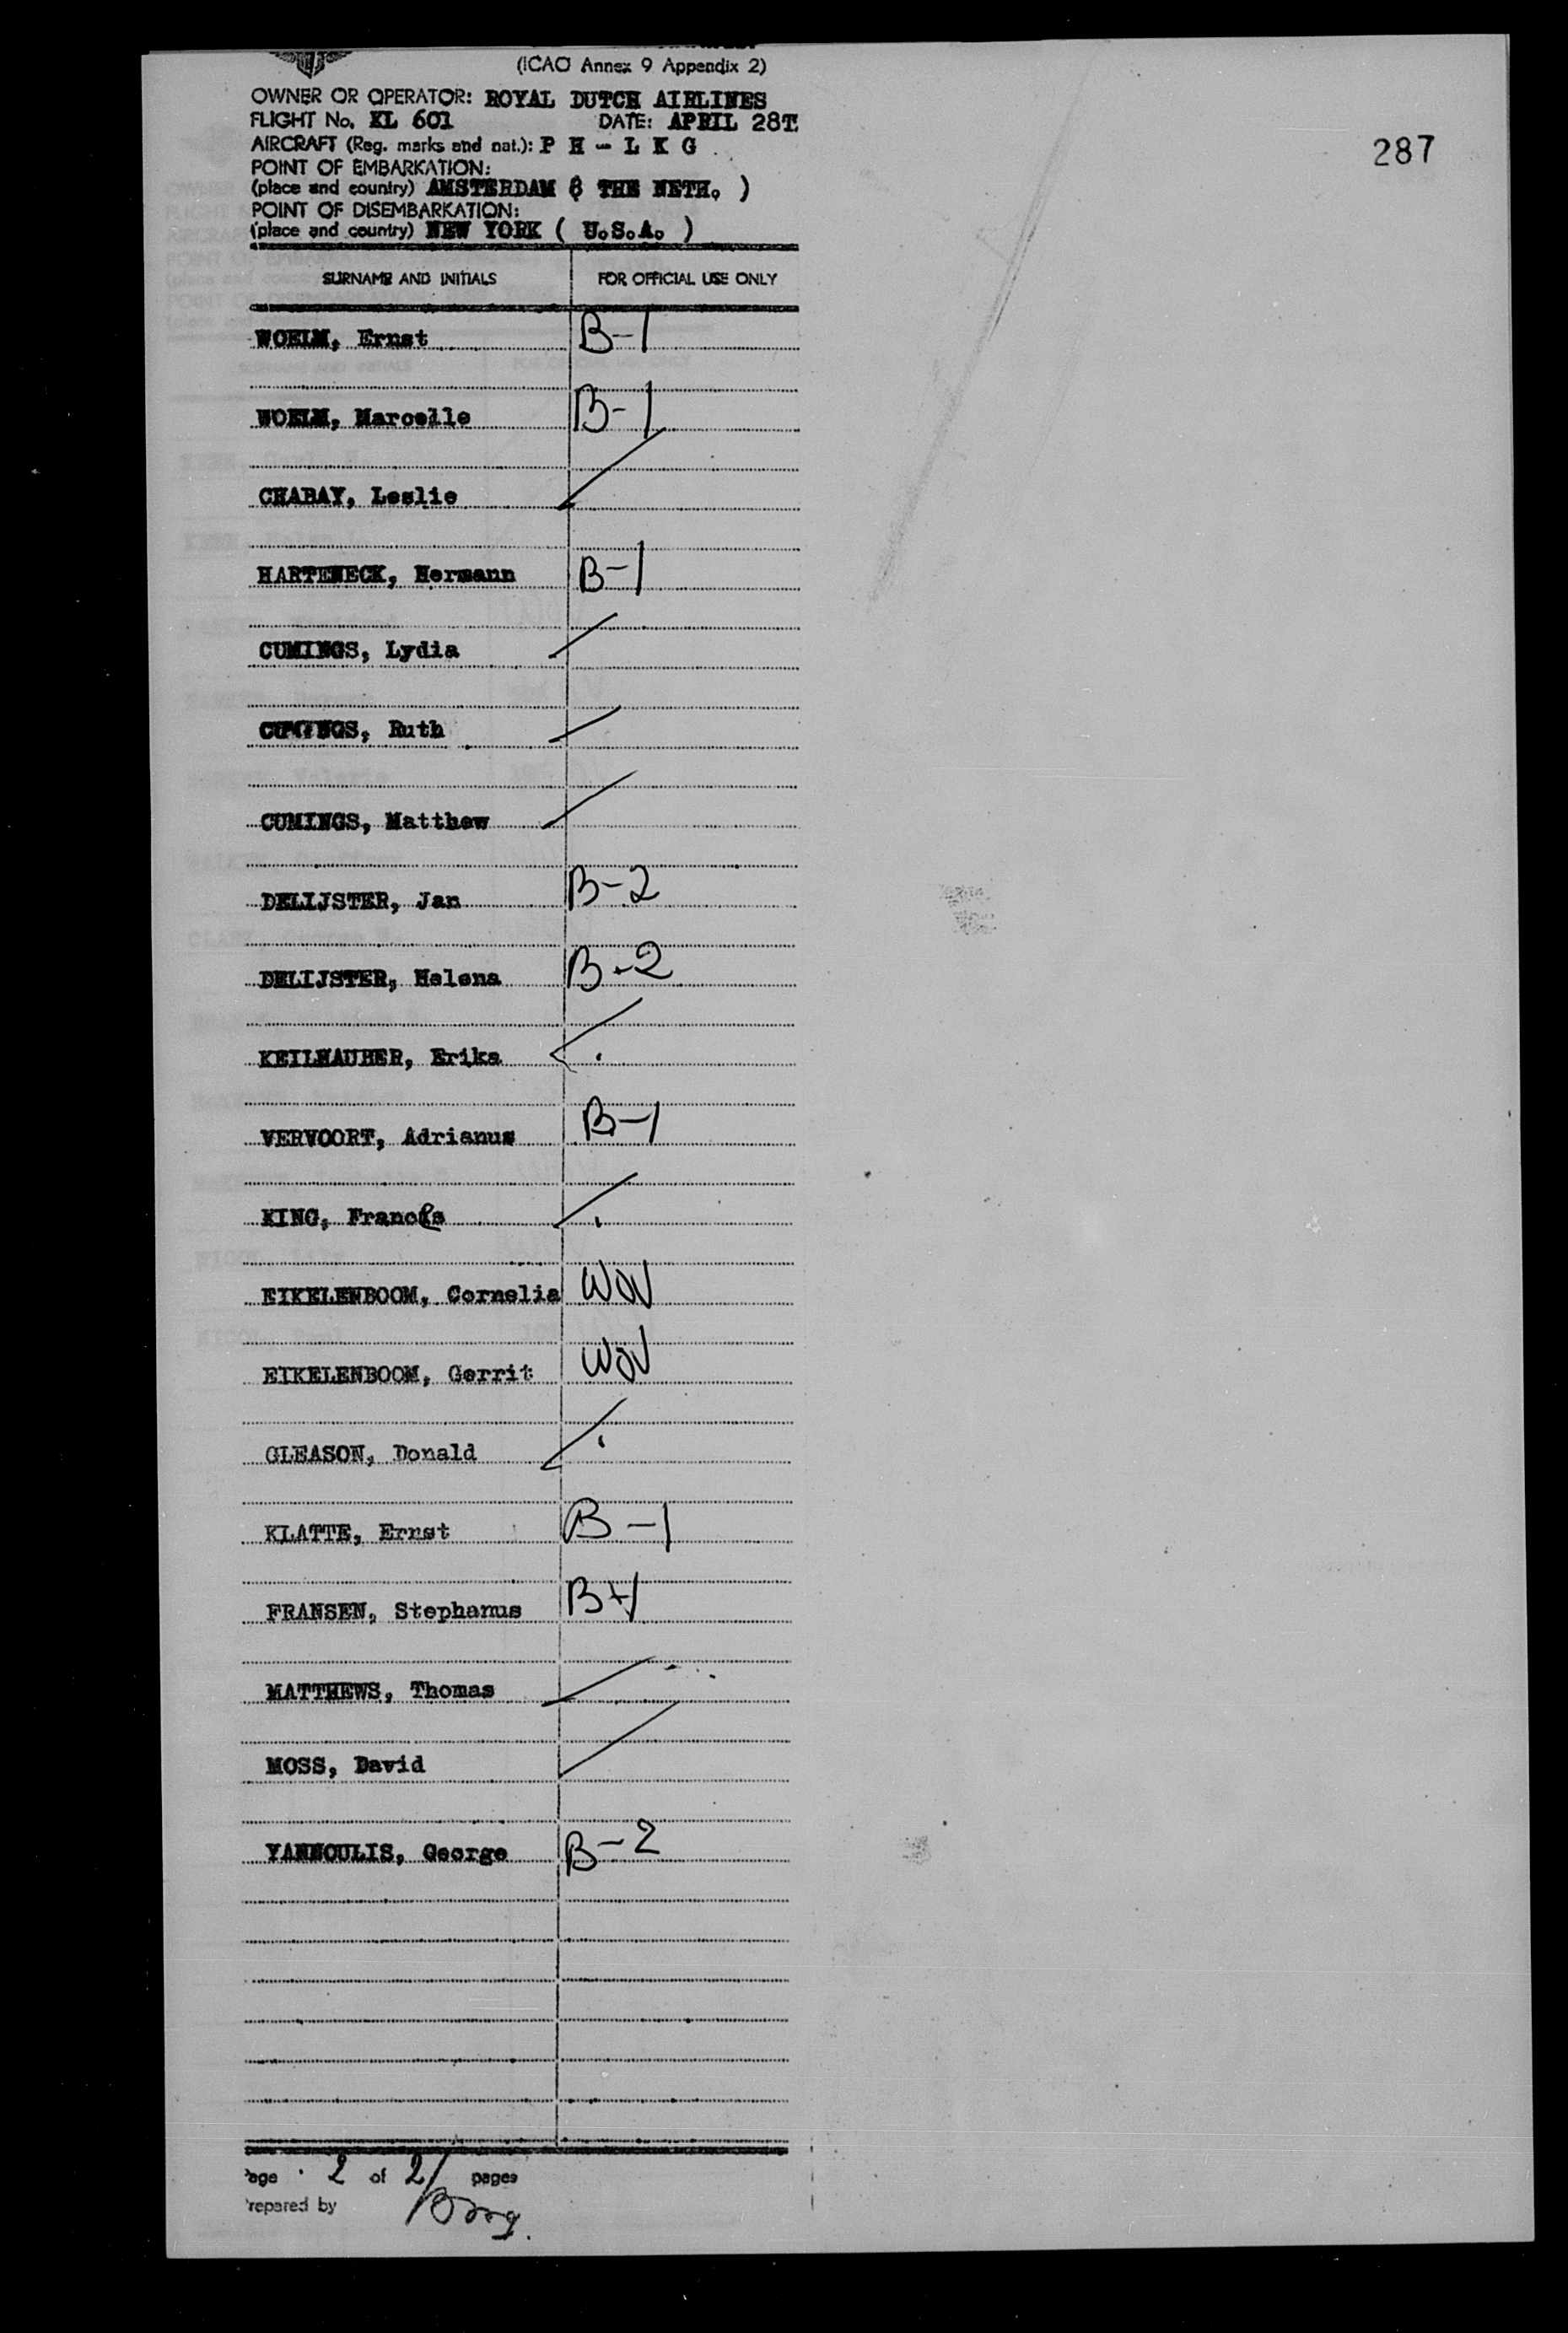 (ICAO Annex 9 Appendix 2)
OWNER OR OPERATOR: ROYAL DUTCH AIRLINES
FLIGHT No. KL 601 DATE: APRIL 28T
287
AIRCRAFT (Reg. marks and nat.): P H - L K G
POINT OF EMBARKATION:
(place and country) AMSTERDAM ( THE NETH. )
POINT OF DISEMBARKATION:
(place and country) NEW YORK ( U.S.A. )
SURNAME AND INITIALS FOR OFFICIAL USE ONLY
WOELM, Ernst B-1
WOELM, Marcelle B-1
CHABAY, Leslie
HARTENECK, Hermann B-1
CUMINGS, Lydia
CUMINGS, Ruth
CUMINGS, Matthew
DELIJSTER, Jan B-2
DELIJSTER, Helena B-2
KEILHAUBER, Erika
VERVOORT, Adrianus B-1
KING, Frances
EIKELENBOOM, Cornelia WOV
EIKELENBOOM, Gerrit WOV
GLEASON, Donald
KLATTE, Ernst B-1
FRANSEN, Stephanus B-1
MATTHEWS, Thomas
MOSS, David
YANNOULIS, George B-2
Page 2 of 2 pages
Prepared by